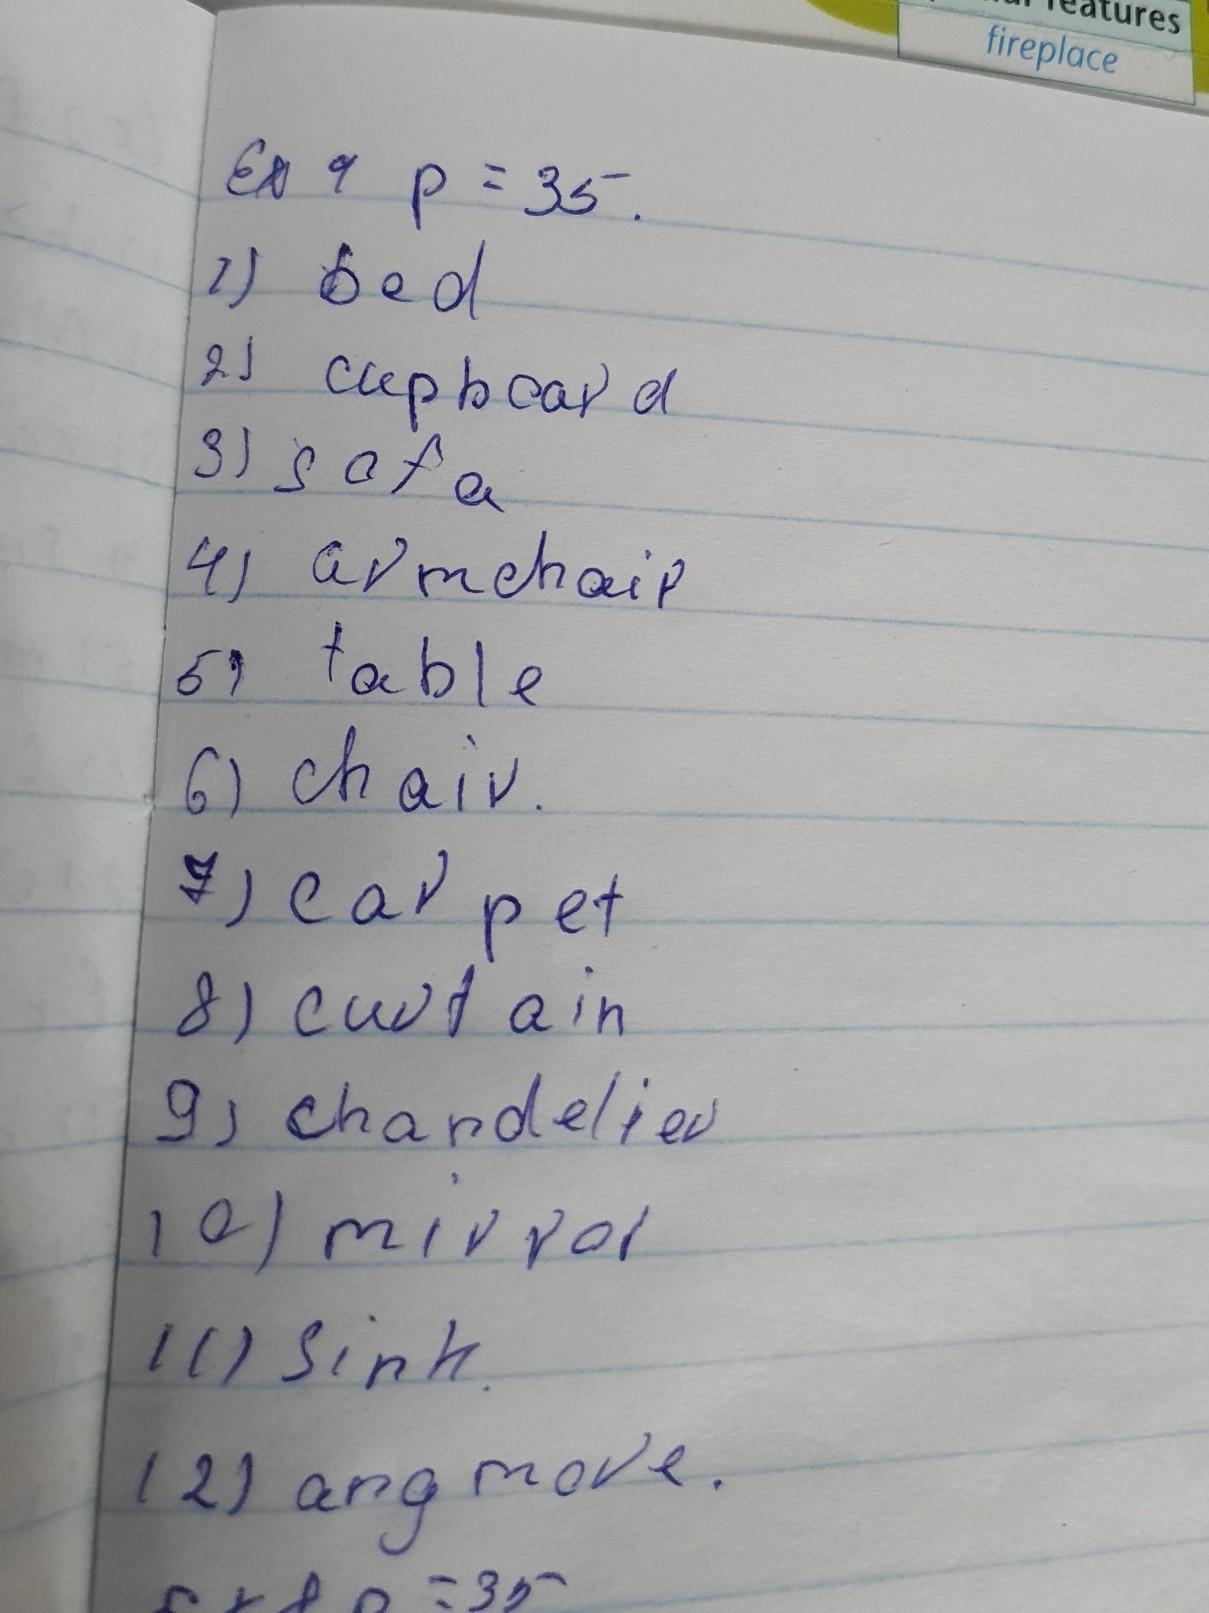 features
fireplace
Ex 9 p = 35.
1) bed
2) cupboard
3) sofa
4) armchair
5) table
6) chair.
7) carpet
8) curtain
9) chandelier
10) mirror
11) Sink.
12) ang more.
p = 35